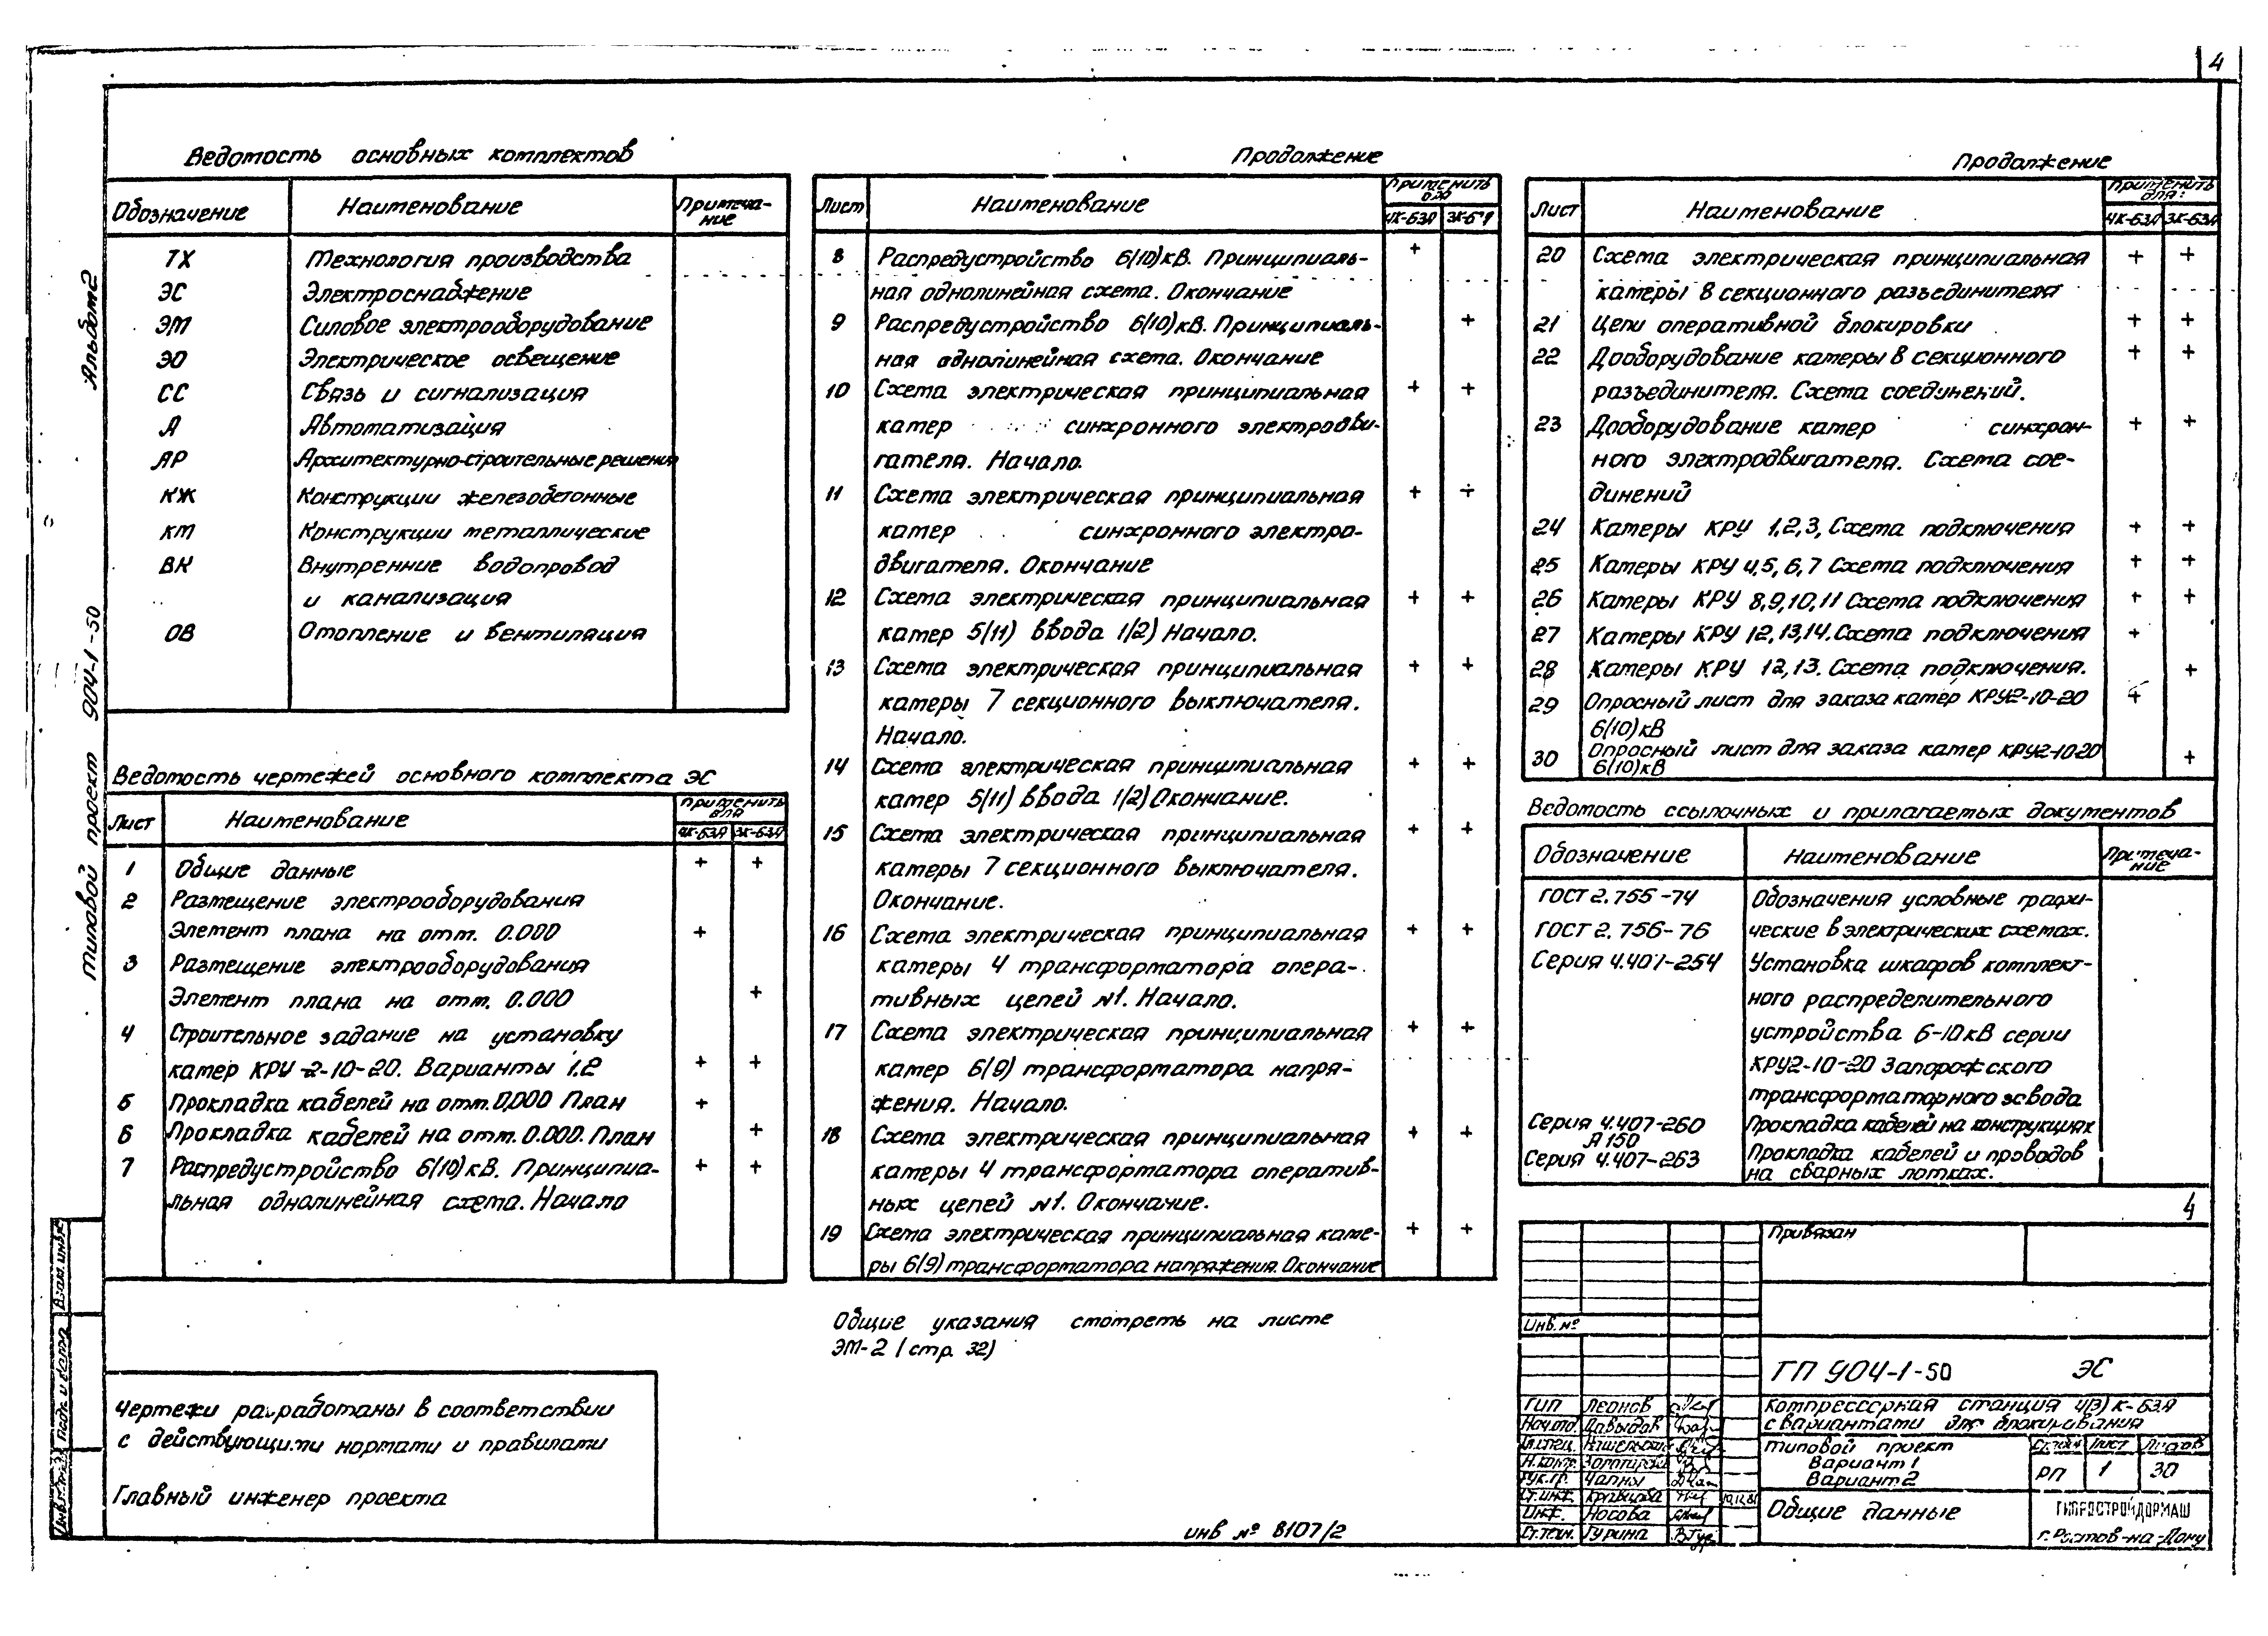 4
Альбом 2
Типовой проект 904-1-50
Ведомость основных комплектов
Обозначение Наименование Примеча-
ние
ТХ Технология производства
ЭС Электроснабжение
ЭМ Силовое электрооборудование
ЭО Электрическое освещение
СС Связь и сигнализация
А Автоматизация
АР Архитектурно-строительные решения
КЖ Конструкции железобетонные
КМ Конструкции металлические
ВК Внутренние водопровод
и канализация
ОВ Отопление и вентиляция
Ведомость чертежей основного комплекта ЭС
Лист Наименование Применить
для
4К-63А 3К-63А
1 Общие данные + +
2 Размещение электрооборудования
Элемент плана на отм. 0.000 +
3 Размещение электрооборудования
Элемент плана на отм. 0.000 +
4 Строительное задание на установку
камер КРУ-2-10-20. Варианты 1,2 + +
5 Прокладка кабелей на отм. 0,000 План +
6 Прокладка кабелей на отм. 0.000. План +
7 Распредустройство 6(10)кВ. Принципиа- + +
льная однолинейная схема. Начало
Чертежи разработаны в соответствии
с действующими нормами и правилами
Главный инженер проекта
Взам. инв.№
Подп. и дата
Продолжение
Лист Наименование Применить
для
4К-63А 3К-63А
8 Распредустройство 6(10)кВ. Принципиаль- +
ная однолинейная схема. Окончание
9 Распредустройство 6(10)кВ. Принципиаль- +
ная однолинейная схема. Окончание
10 Схема электрическая принципиальная + +
камер синхронного электродви-
гателя. Начало.
11 Схема электрическая принципиальная + +
камер синхронного электро-
двигателя. Окончание
12 Схема электрическая принципиальная + +
камер 5(11) ввода 1(2) Начало.
13 Схема электрическая принципиальная + +
камеры 7 секционного выключателя.
Начало.
14 Схема электрическая принципиальная + +
камер 5(11) ввода 1(2) Окончание.
15 Схема электрическая принципиальная + +
камеры 7 секционного выключателя.
Окончание.
16 Схема электрическая принципиальная + +
камеры 4 трансформатора опера-
тивных цепей №1. Начало.
17 Схема электрическая принципиальная + +
камер 6(9) трансформатора напря-
жения. Начало.
18 Схема электрическая принципиальная + +
камеры 4 трансформатора оператив-
ных цепей №1. Окончание.
19 Схема электрическая принципиальная каме- + +
ры 6(9) трансформатора напряжения. Окончание
Общие указания смотреть на листе
ЭМ-2 (стр. 32)
инв № 8107/2
Продолжение
Лист Наименование Применить
для:
4К-63А 3К-63А
20 Схема электрическая принципиальная + +
камеры 8 секционного разъединителя
21 Цепи оперативной блокировки + +
22 Дооборудование камеры 8 секционного + +
разъединителя. Схема соединений.
23 Дооборудование камер синхрон- + +
ного электродвигателя. Схема сое-
динений
24 Камеры КРУ 1,2,3, Схема подключения + +
25 Камеры КРУ 4,5,6,7 Схема подключения + +
26 Камеры КРУ 8,9,10,11 Схема подключения + +
27 Камеры КРУ 12,13,14. Схема подключения +
28 Камеры КРУ 12,13. Схема подключения. +
29 Опросный лист для заказа камер КРУ2-10-20 +
6(10)кВ
30 Опросный лист для заказа камер КРУ2-10-20 +
6(10)кВ
Ведомость ссылочных и прилагаемых документов
Обозначение Наименование Примеча-
ние
ГОСТ 2.755-74 Обозначения условные графи-
ГОСТ 2.756-76 ческие в электрических схемах.
Серия 4.407-254 Установка шкафов комплект-
ного распределительного
устройства 6-10кВ серии
КРУ2-10-20 Запорожского
трансформаторного завода
Серия 4.407-260 Прокладка кабелей на конструкциях
А 150
Серия 4.407-263 Прокладка кабелей и проводов
на сварных лотках.
4
Привязан
Инв.№
ТП 904-1-50 ЭС
ГИП Леонов
Нач.отд. Давыдов
Гл.спец.
Н.контр.
Рук.гр. Чапны
Ст.инж. Кравцова
Инж. Носова
Ст.техн. Гурина
Компрессорная станция 4(3)К-63А
с вариантами для блокирования
Типовой проект
Вариант 1
Вариант 2
Стадия Лист Листов
РП 1 30
Общие данные
ГИПРОСТРОЙДОРМАШ
г. Ростов-на-Дону